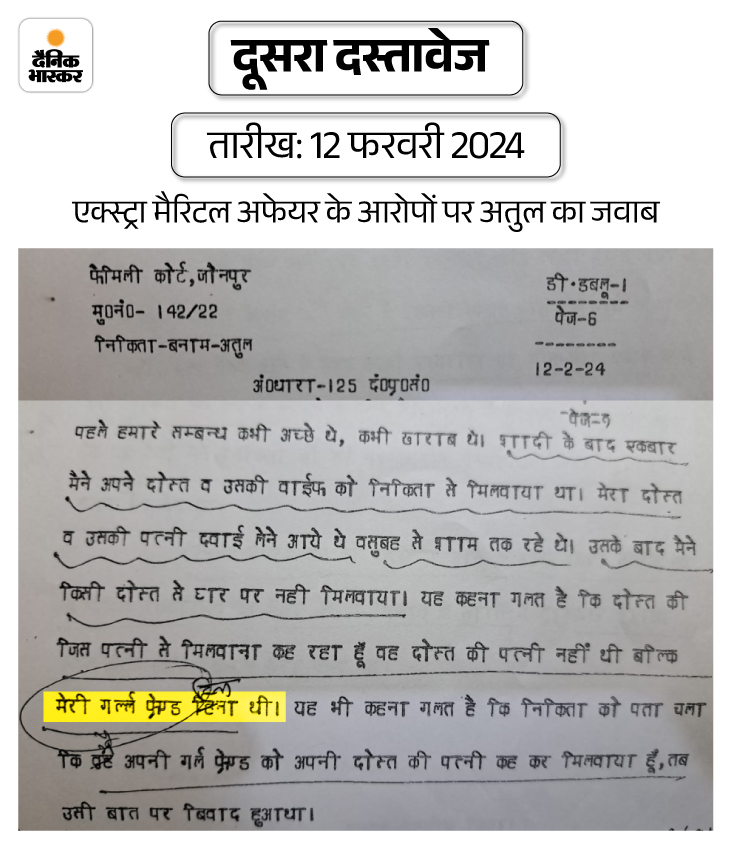 दैनिक
भास्कर
दूसरा दस्तावेज
तारीख: 12 फरवरी 2024
एक्स्ट्रा मैरिटल अफेयर के आरोपों पर अतुल का जवाब
फेमिली कोर्ट,जौनपुर
डी.डबलू-1
मु0नं0- 142/22
पेज-6
निकिता-बनाम-अतुल
12-2-24
अं0धारा-125 दं0प्र0सं0
-पेज-5
पहले हमारे सम्बन्ध कभी अच्छे थे, कभी खराब थे। शादी के बाद एकबार
मैने अपने दोस्त व उसकी वाईफ को निकिता से मिलवाया था। मेरा दोस्त
व उसकी पत्नी दवाई लेने आये थे वसुबह से शाम तक रहे थे। उसके बाद मैने
किसी दोस्त से घर पर नही मिलवाया। यह कहना गलत है कि दोस्त की
जिस पत्नी से मिलवाना कह रहा हूँ वह दोस्त की पत्नी नहीं थी बल्कि
मेरी गर्ल्ल फ्रेण्ड थी। यह भी कहना गलत है कि निकिता को पता चला
कि अपनी गर्ल फ्रेण्ड को अपनी दोस्त की पत्नी कह कर मिलवाया हूँ,तब
उसी बात पर बिवाद हुआथा।